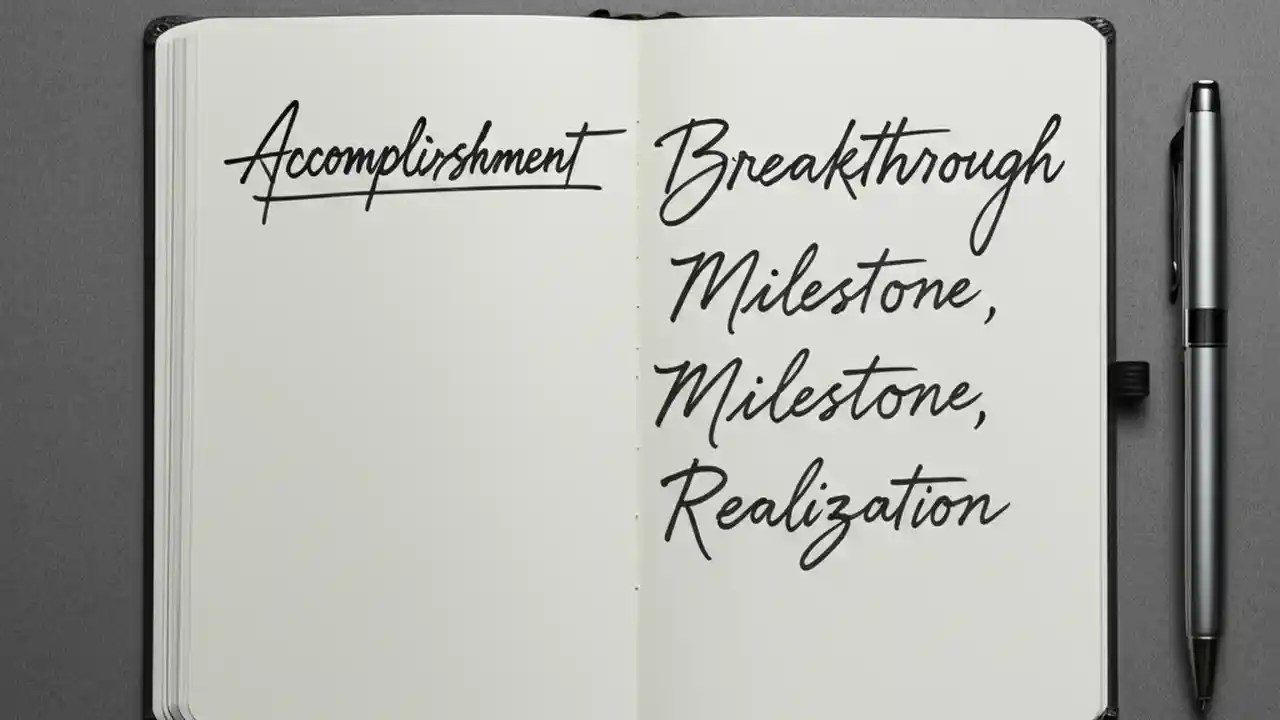 Accomplirshment
Breakthrough
Milestone,
Milestone,
Realization